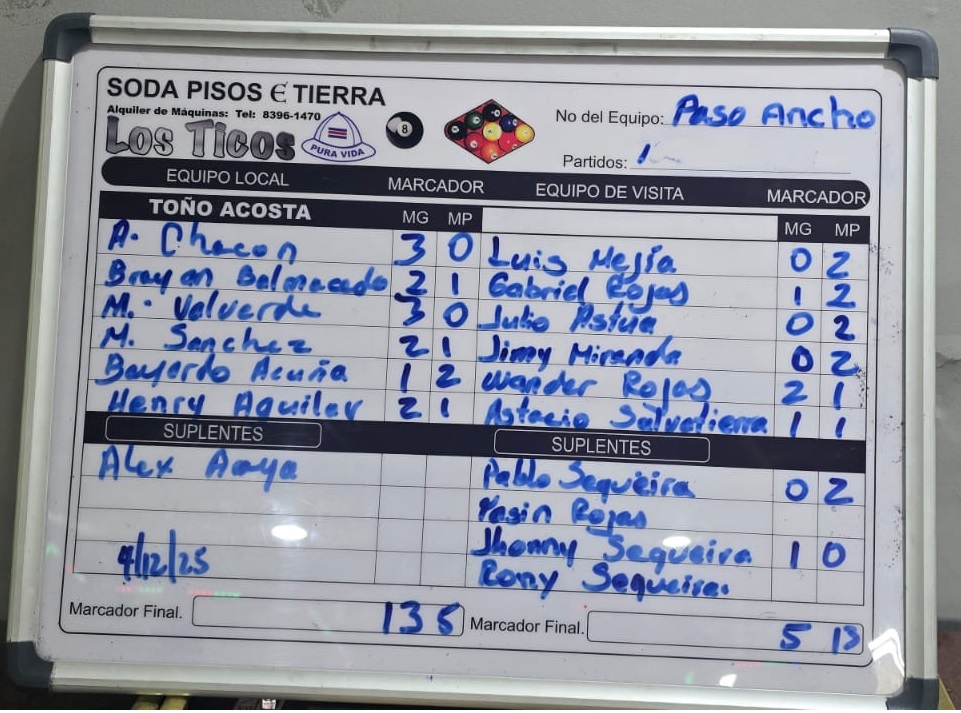 SODA PISOS E TIERRA
Alquiler de Máquinas: Tel: 8396-1470
Los Ticos
PURA VIDA
8
No del Equipo: Paso Ancho
Partidos: 1
EQUIPO LOCAL MARCADOR EQUIPO DE VISITA MARCADOR
TOÑO ACOSTA MG MP MG MP
A. Chacon 3 0 Luis Mejía 0 2
Brayan Balmaceda 2 1 Gabriel Rojas 1 2
M. Valverde 3 0 Julio Astua 0 2
M. Sanchez 2 1 Jimy Miranda 0 2
Bayardo Acuña 1 2 Wander Rojas 2 1
Henry Aguiler 2 1 Astacio Salvatierra 1 1
SUPLENTES SUPLENTES
Alex Amya Pablo Sequeira 0 2
Yasin Rojas
Jhonny Sequeira 1 0
4/12/25 Rony Sequeira
Marcador Final. 13 5 Marcador Final. 5 13